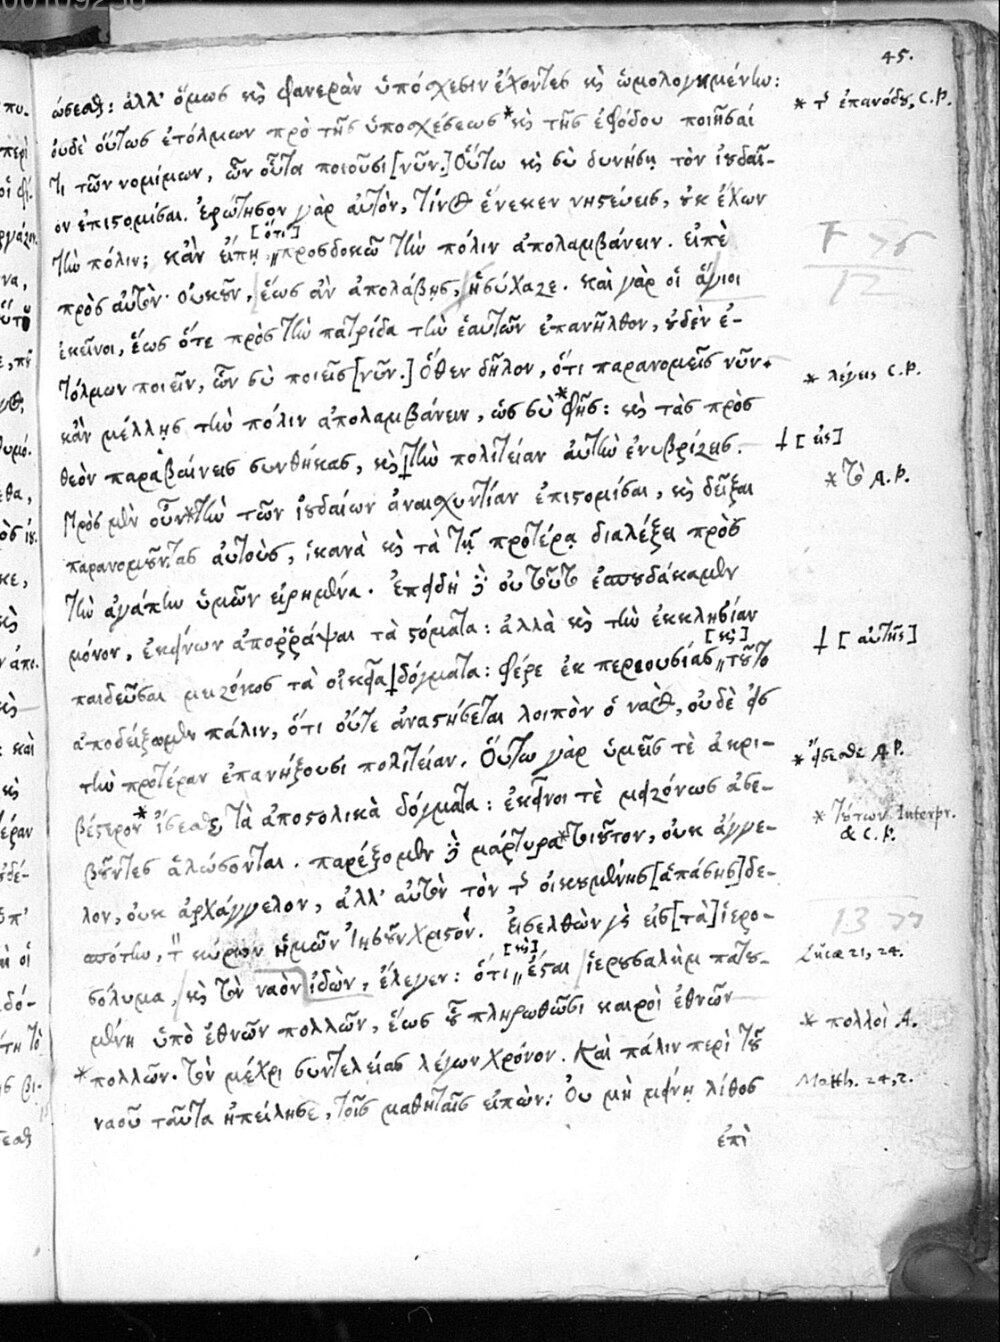 45.
ώσεσθαι: ἀλλ' ὅμως καὶ φανερὰν ὑπόσχεσιν ἔχοντες καὶ ὡμολογημένην:
* τῆς ἐπανόδου, C.P.
οὐδὲ οὕτως ἐτόλμων πρὸ τῆς ὑποσχέσεως * καὶ τῆς ἐφόδου ποιῆσαί
τι τῶν νομίμων, ὧν οὗτοι ποιοῦσι [νῦν.] Οὕτω καὶ σὺ δυνήσῃ τὸν ἰουδαῖ-
ον ἐπιστομίσαι. Ἐρώτησον γὰρ αὐτὸν, τίνος ἕνεκεν νηστεύεις, οὐκ ἔχων
[ὅτι]
τὴν πόλιν; κἂν εἴπῃ „ προσδοκῶ τὴν πόλιν ἀπολαμβάνειν. εἰπὲ
πρὸς αὐτὸν· Οὐκοῦν, ἕως ἂν ἀπολάβῃς, ἡσύχαζε. καὶ γὰρ οἱ ἅγιοι
ἐκεῖνοι, ἕως ὅτε πρὸς τὴν πατρίδα τὴν ἑαυτῶν ἐπανῆλθον, οὐδὲν ἐ-
τόλμων ποιεῖν, ὧν σὺ ποιεῖς [νῦν.] Ὅθεν δῆλον, ὅτι παρανομεῖς νῦν.
* λέγεις C.P.
κἂν μέλλῃς τὴν πόλιν ἀπολαμβάνειν, ὡς σὺ * φῄς: καὶ τὰς πρὸς
θεὸν παραβαίνεις συνθήκας, καὶ † τὴν πολιτείαν αὐτὴν ἐνυβρίζεις.
† [εἰς]
Πρὸς μὲν οὖν * τὴν τῶν ἰουδαίων ἀναισχυντίαν ἐπιστομίσαι, καὶ δεῖξαι
* τὸ A.P.
παρανομοῦντας αὐτοὺς, ἱκανὰ καὶ τὰ τῇ προτέρᾳ διαλέξει πρὸς
τὴν ἀγάπην ὑμῶν εἰρημένα. Ἐπειδὴ δὲ οὐ τοῦτο ἐσπουδάκαμεν
μόνον, ἐκείνων ἀποῤῥάψαι τὰ στόματα: ἀλλὰ καὶ τὴν ἐκκλησίαν
[καὶ]
παιδεῦσαι μειζόνως τὰ οἰκεῖα † δόγματα: φέρε ἐκ περιουσίας „ τοῦτο
† [αὐτῆς]
ἀποδείξωμεν πάλιν, ὅτι οὔτε ἀναστήσεται λοιπὸν ὁ ναὸς, οὐδὲ εἰς
τὴν προτέραν ἐπανήξουσι πολιτείαν. Οὕτω γὰρ ὑμεῖς τὲ ἀκρι-
βέστερον * ἴσεσθε τὰ ἀποστολικὰ δόγματα: ἐκεῖνοι τὲ μειζόνως ἀσε-
* εἴσεσθε A.P.
βοῦντες ἁλώσονται. παρέξομεν δὲ μάρτυρα * τοιοῦτον, οὐκ ἄγγε-
* τούτων Interpr.
& C.P.
λον, οὐκ ἀρχάγγελον, ἀλλ' αὐτὸν τὸν τῆς οἰκουμένης [ἁπάσης] δε-
σπότην, τὸν κύριον ἡμῶν Ἰησοῦν Χριστόν. Εἰσελθὼν γὰρ εἰς [τὰ] ἱερο-
[καὶ]
σόλυμα, καὶ τὸν ναὸν ἰδὼν, ἔλεγεν: ὅτι „ ἔσται ἱερουσαλὴμ πατου-
Lucæ 21, 24.
μένη ὑπὸ ἐθνῶν πολλῶν, ἕως οὗ πληρωθῶσι καιροὶ ἐθνῶν
* πολλοὶ A.
* πολλῶν. τὸν μέχρι συντελείας λέγων χρόνον. Καὶ πάλιν περὶ τοῦ
ναοῦ ταῦτα ἠπείλησε, τοῖς μαθηταῖς εἰπών: Οὐ μὴ μείνῃ λίθος
Matth. 24, 2.
ἐπὶ